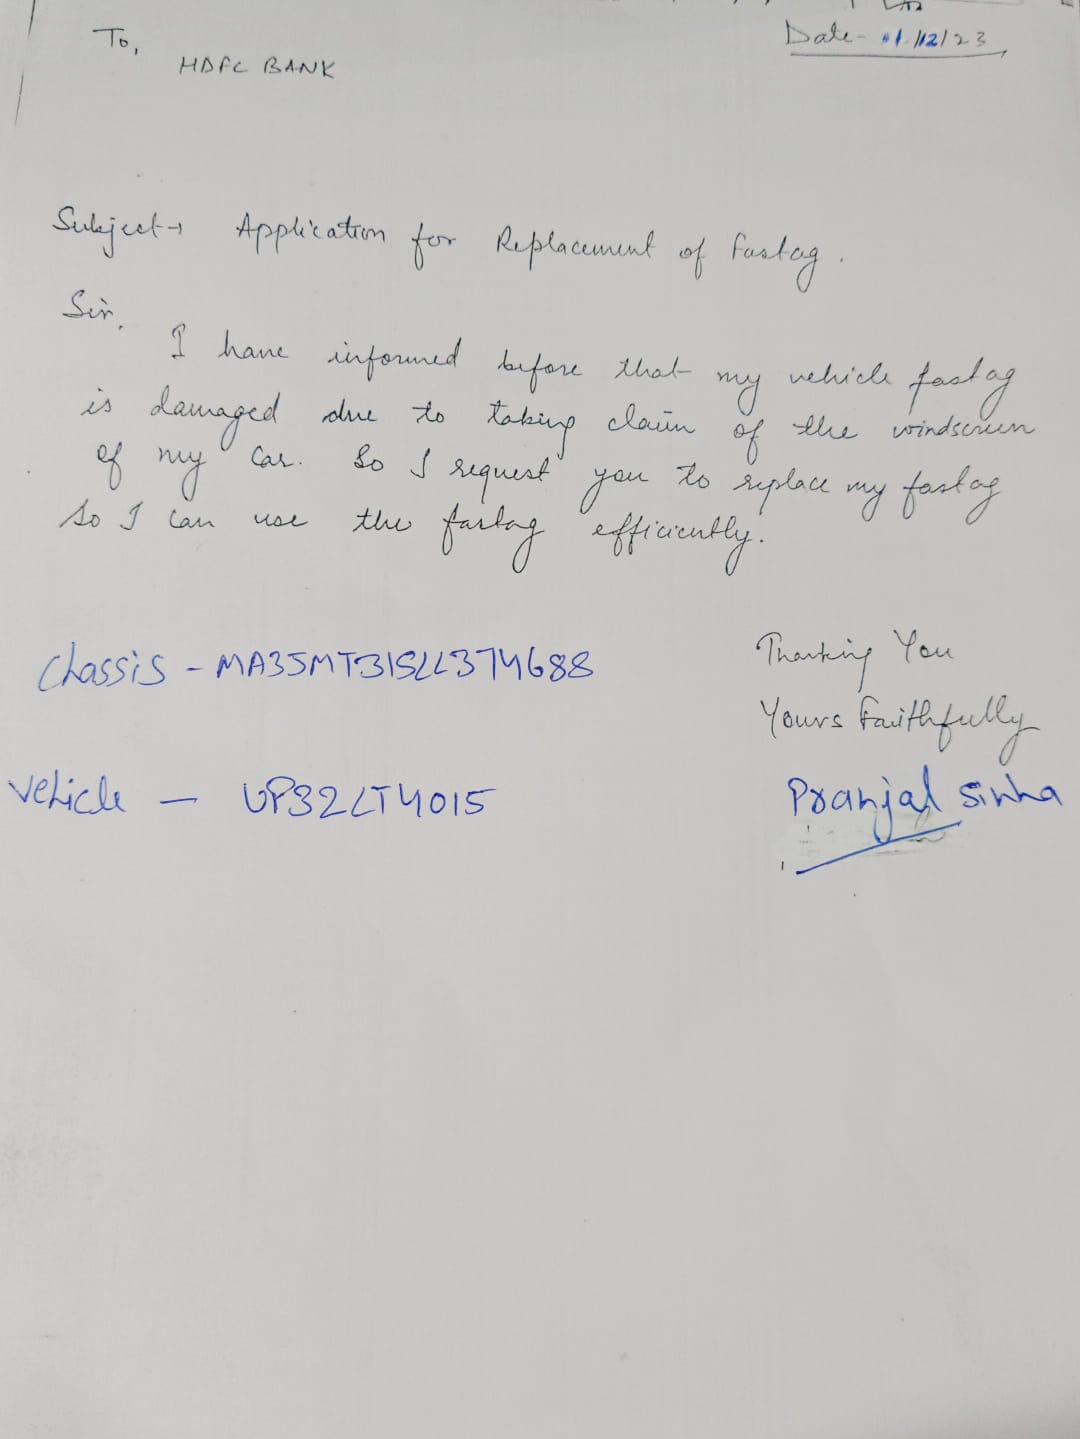 To,
Date- 01/12/23
HDFC BANK
Subject→ Application for Replacement of Fastag.
Sir,
I have informed before that my vehicle fastag
is damaged due to taking claim of the windscreen
of my car. So I request you to replace my fastag
so I can use the fastag efficiently.
Thanking You
Chassis - MA3JMT31SLL374688
Yours Faithfully
Vehicle - UP32LT4015
Pranjal Sinha